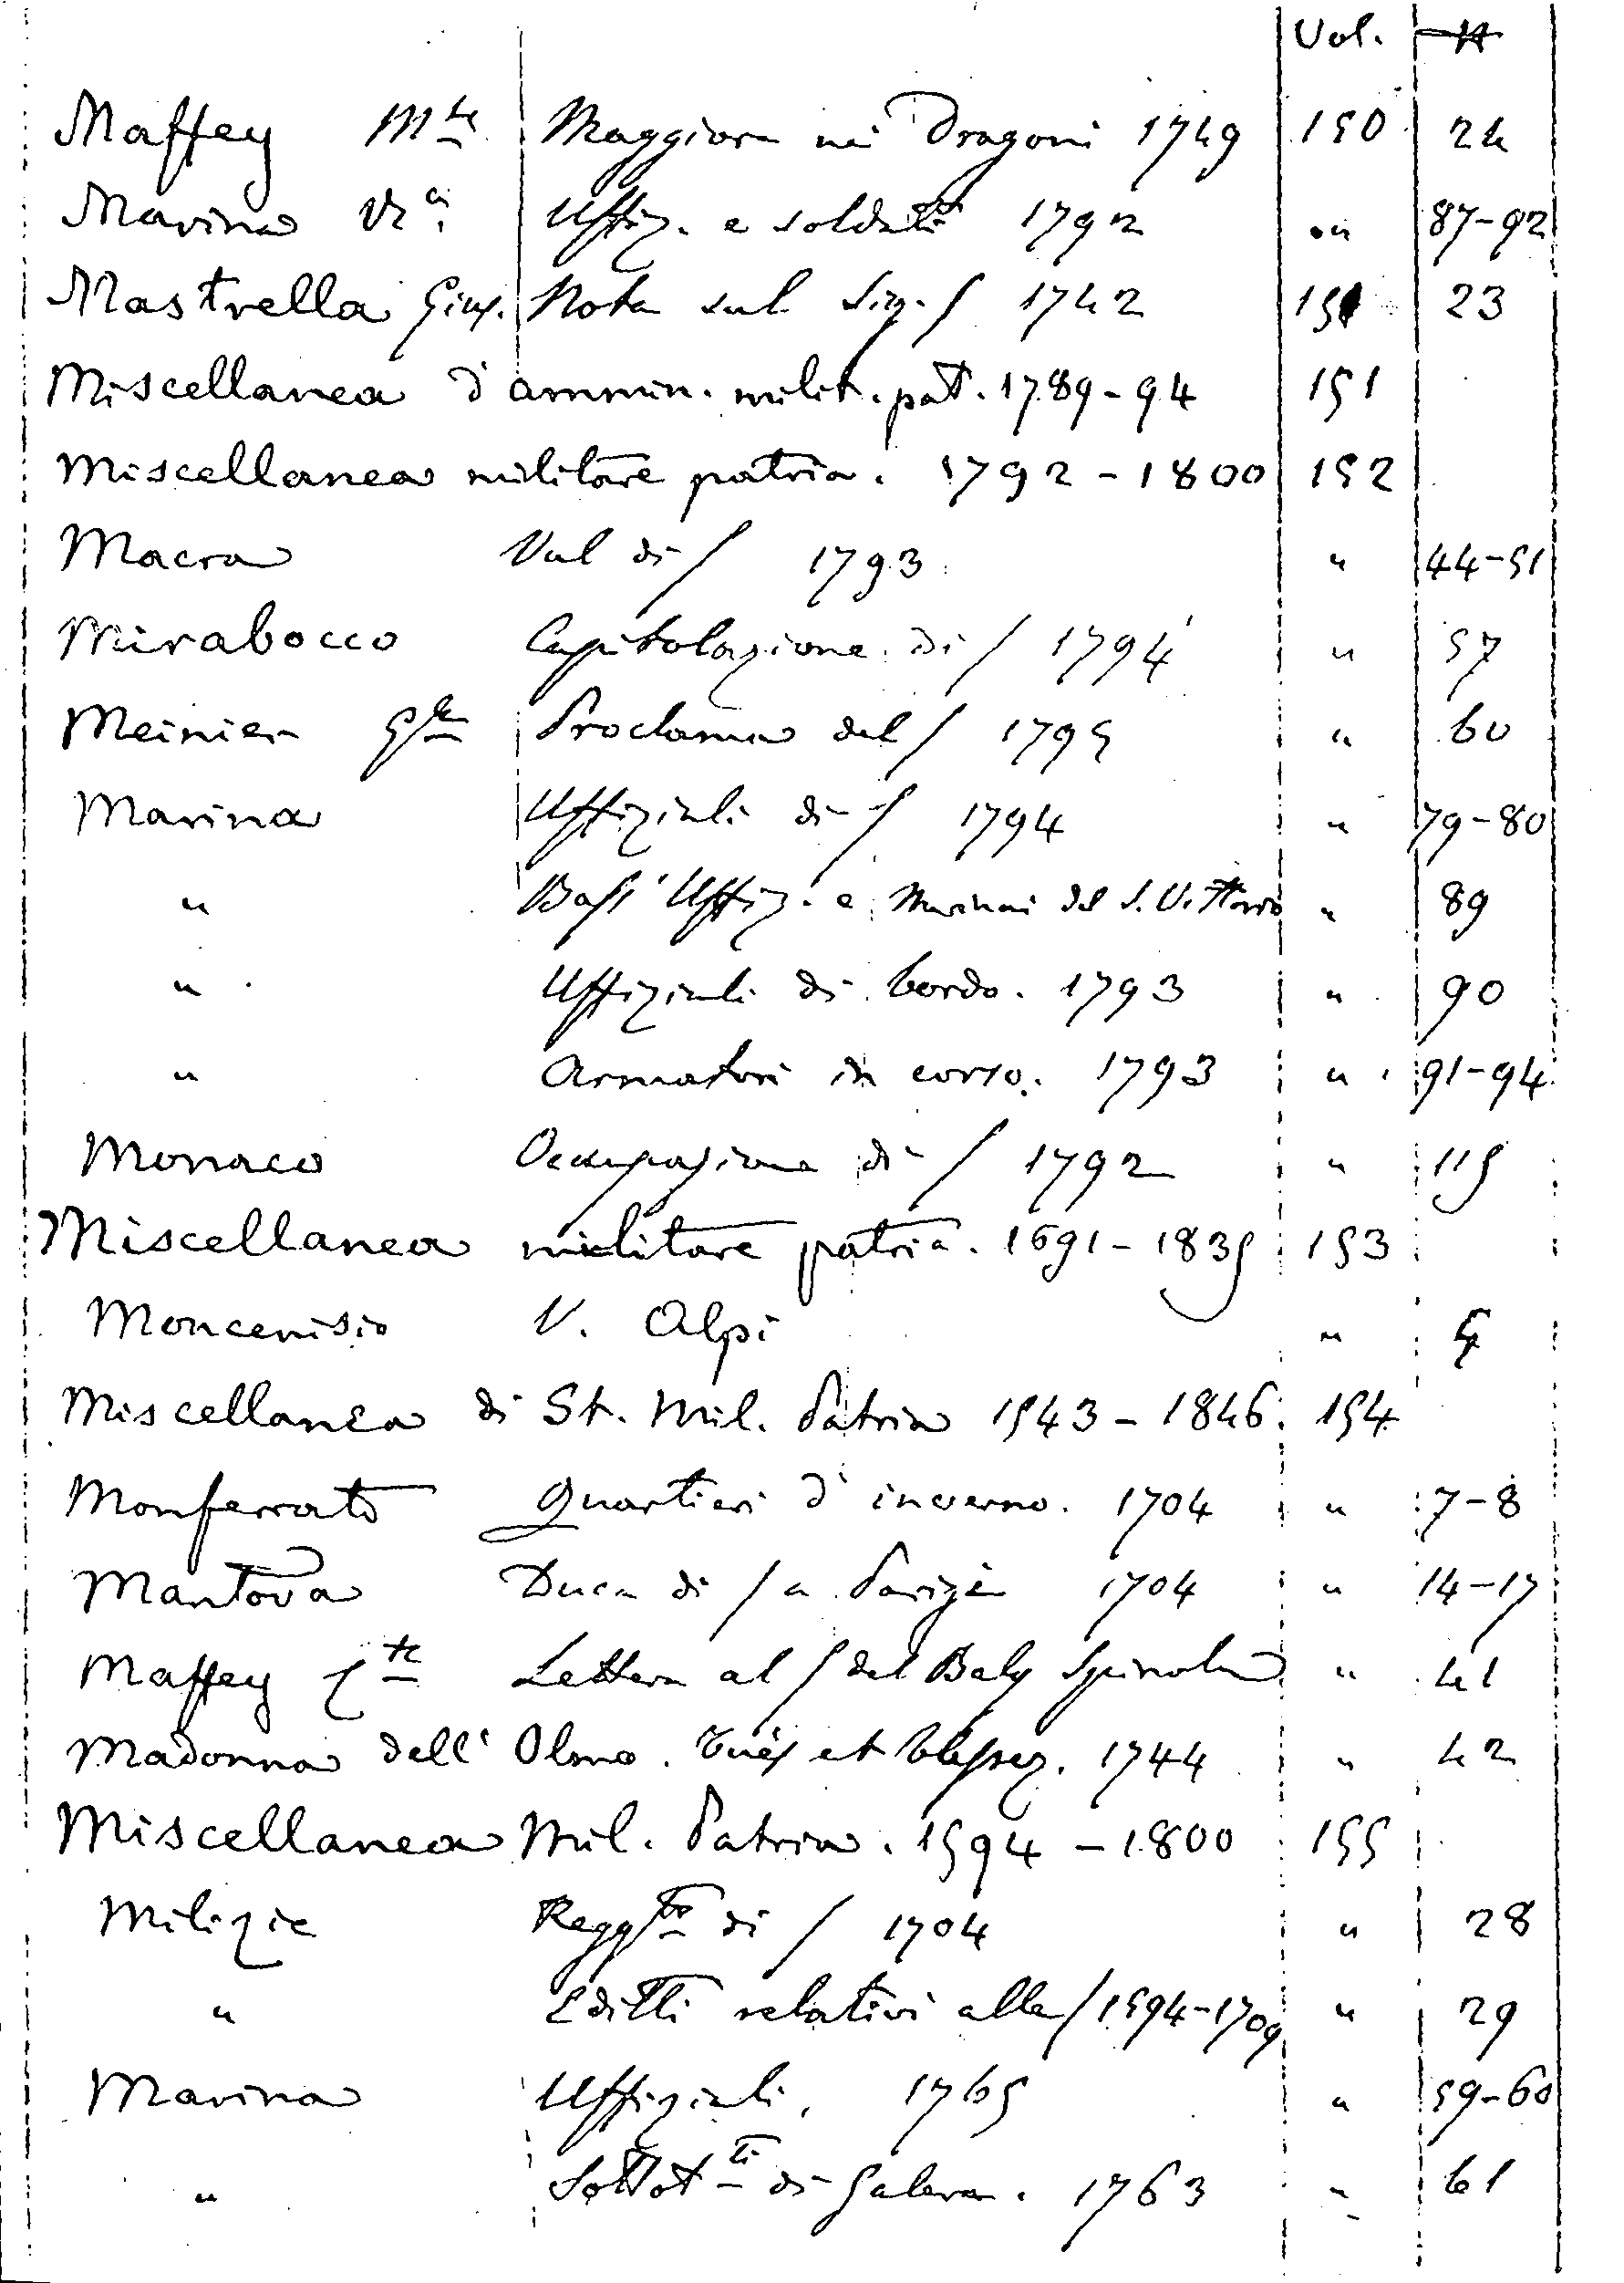 Vol. N
Maffey M.te Maggiore nei Dragoni 1749 150 24
Marina Uffiz. e soldati 1792 " 87-92
Mastrella Gius. Nota sul Sig. / 1742 151 23
Miscellanea d'ammin. milit. pat. 1789-94 151
Miscellanea militare patria. 1792-1800 152
Macra Val di / 1793 " 44-51
Mirabocco Capitolazione di / 1794 " 57
Meinier G.le Proclama del / 1795 " 60
Marina Uffiziali di / 1794 " 79-80
" Bassi Uffiz. e Marinai del S. Vittorio " 89
" Uffiziali di bordo. 1793 " 90
" Armatori in corso. 1793 " 91-94
Monaco Occupazione di / 1792 " 115
Miscellanea militare patria. 1691-1835 153
Moncenisio V. Alpi "
Miscellanea di St. Mil. Patria 1543-1846. 154
Monferrato Quartieri d'inverno. 1704 " 7-8
Mantova Duca di / a Parigi 1704 " 14-17
Maffey C.te Lettera al / del Baly Spinola " 41
Madonna dell' Olmo. Tués et blessez. 1744 " 42
Miscellanea Mil. Patria. 1594-1800 155
Milizie Regg.to di / 1704 " 28
" Editti relativi alle / 1594-1709 " 29
Marina Uffiziali, 1765 " 59-60
" Sottot.ti di Galera. 1763 " 61